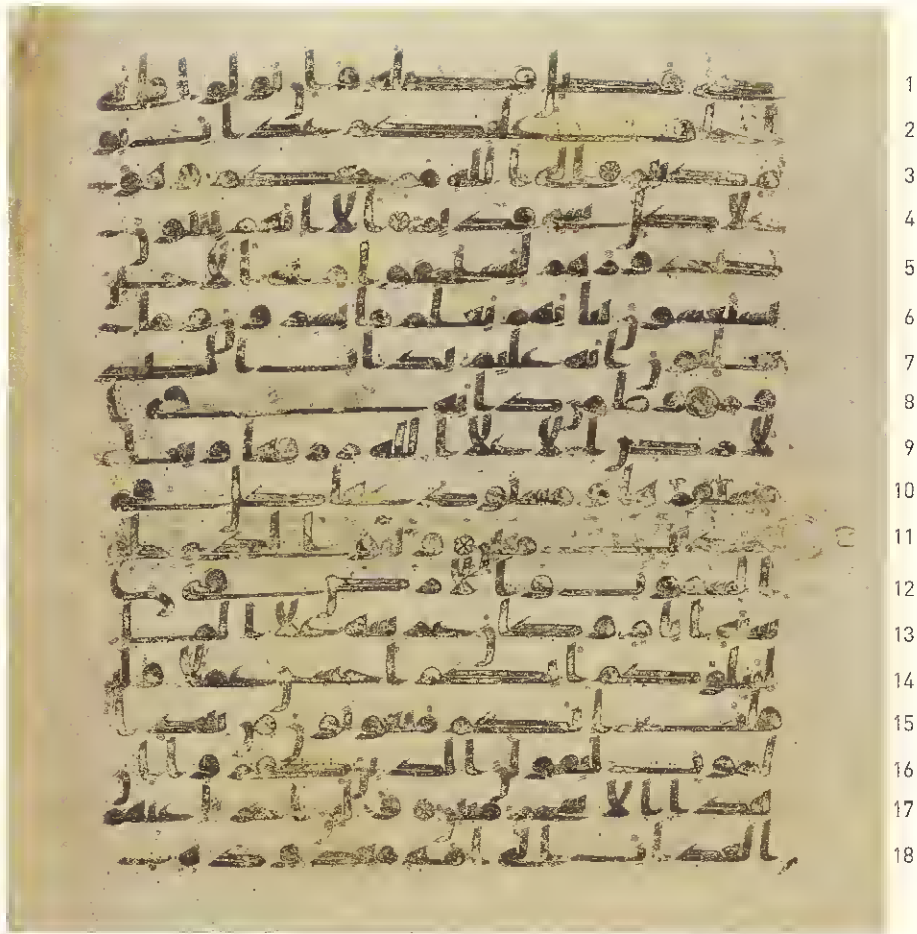 كل ذي فضل فضله وان تولوا فاني 1
اخاف عليكم عذاب يو 2
م كبير الى الله مرجعكم وهو 3
على كل شي قدير الا انهم يثنون 4
صدورهم ليستخفوا منه الا حين 5
يستغشون ثيابهم يعلم ما يسرون وما 6
يعلنون انه عليم بذات الصد 7
ور وما من دابة في ا 8
لارض الا على الله رزقها ويعلم 9
مستقرها ومستودعها كل في 10
كتب مبين وهو الذي خلق 11
السموت والارض في 12
ستة ايام وكان عرشه على الما 13
ليبلوكم ايكم احسن عملا و 14
لئن قلت انكم مبعوثون من بعد 15
الموت ليقولن الذين كفروا ان 16
هذا الا سحر مبين ولئن اخرنا عنهم 17
العذاب الى امة معدودة 18